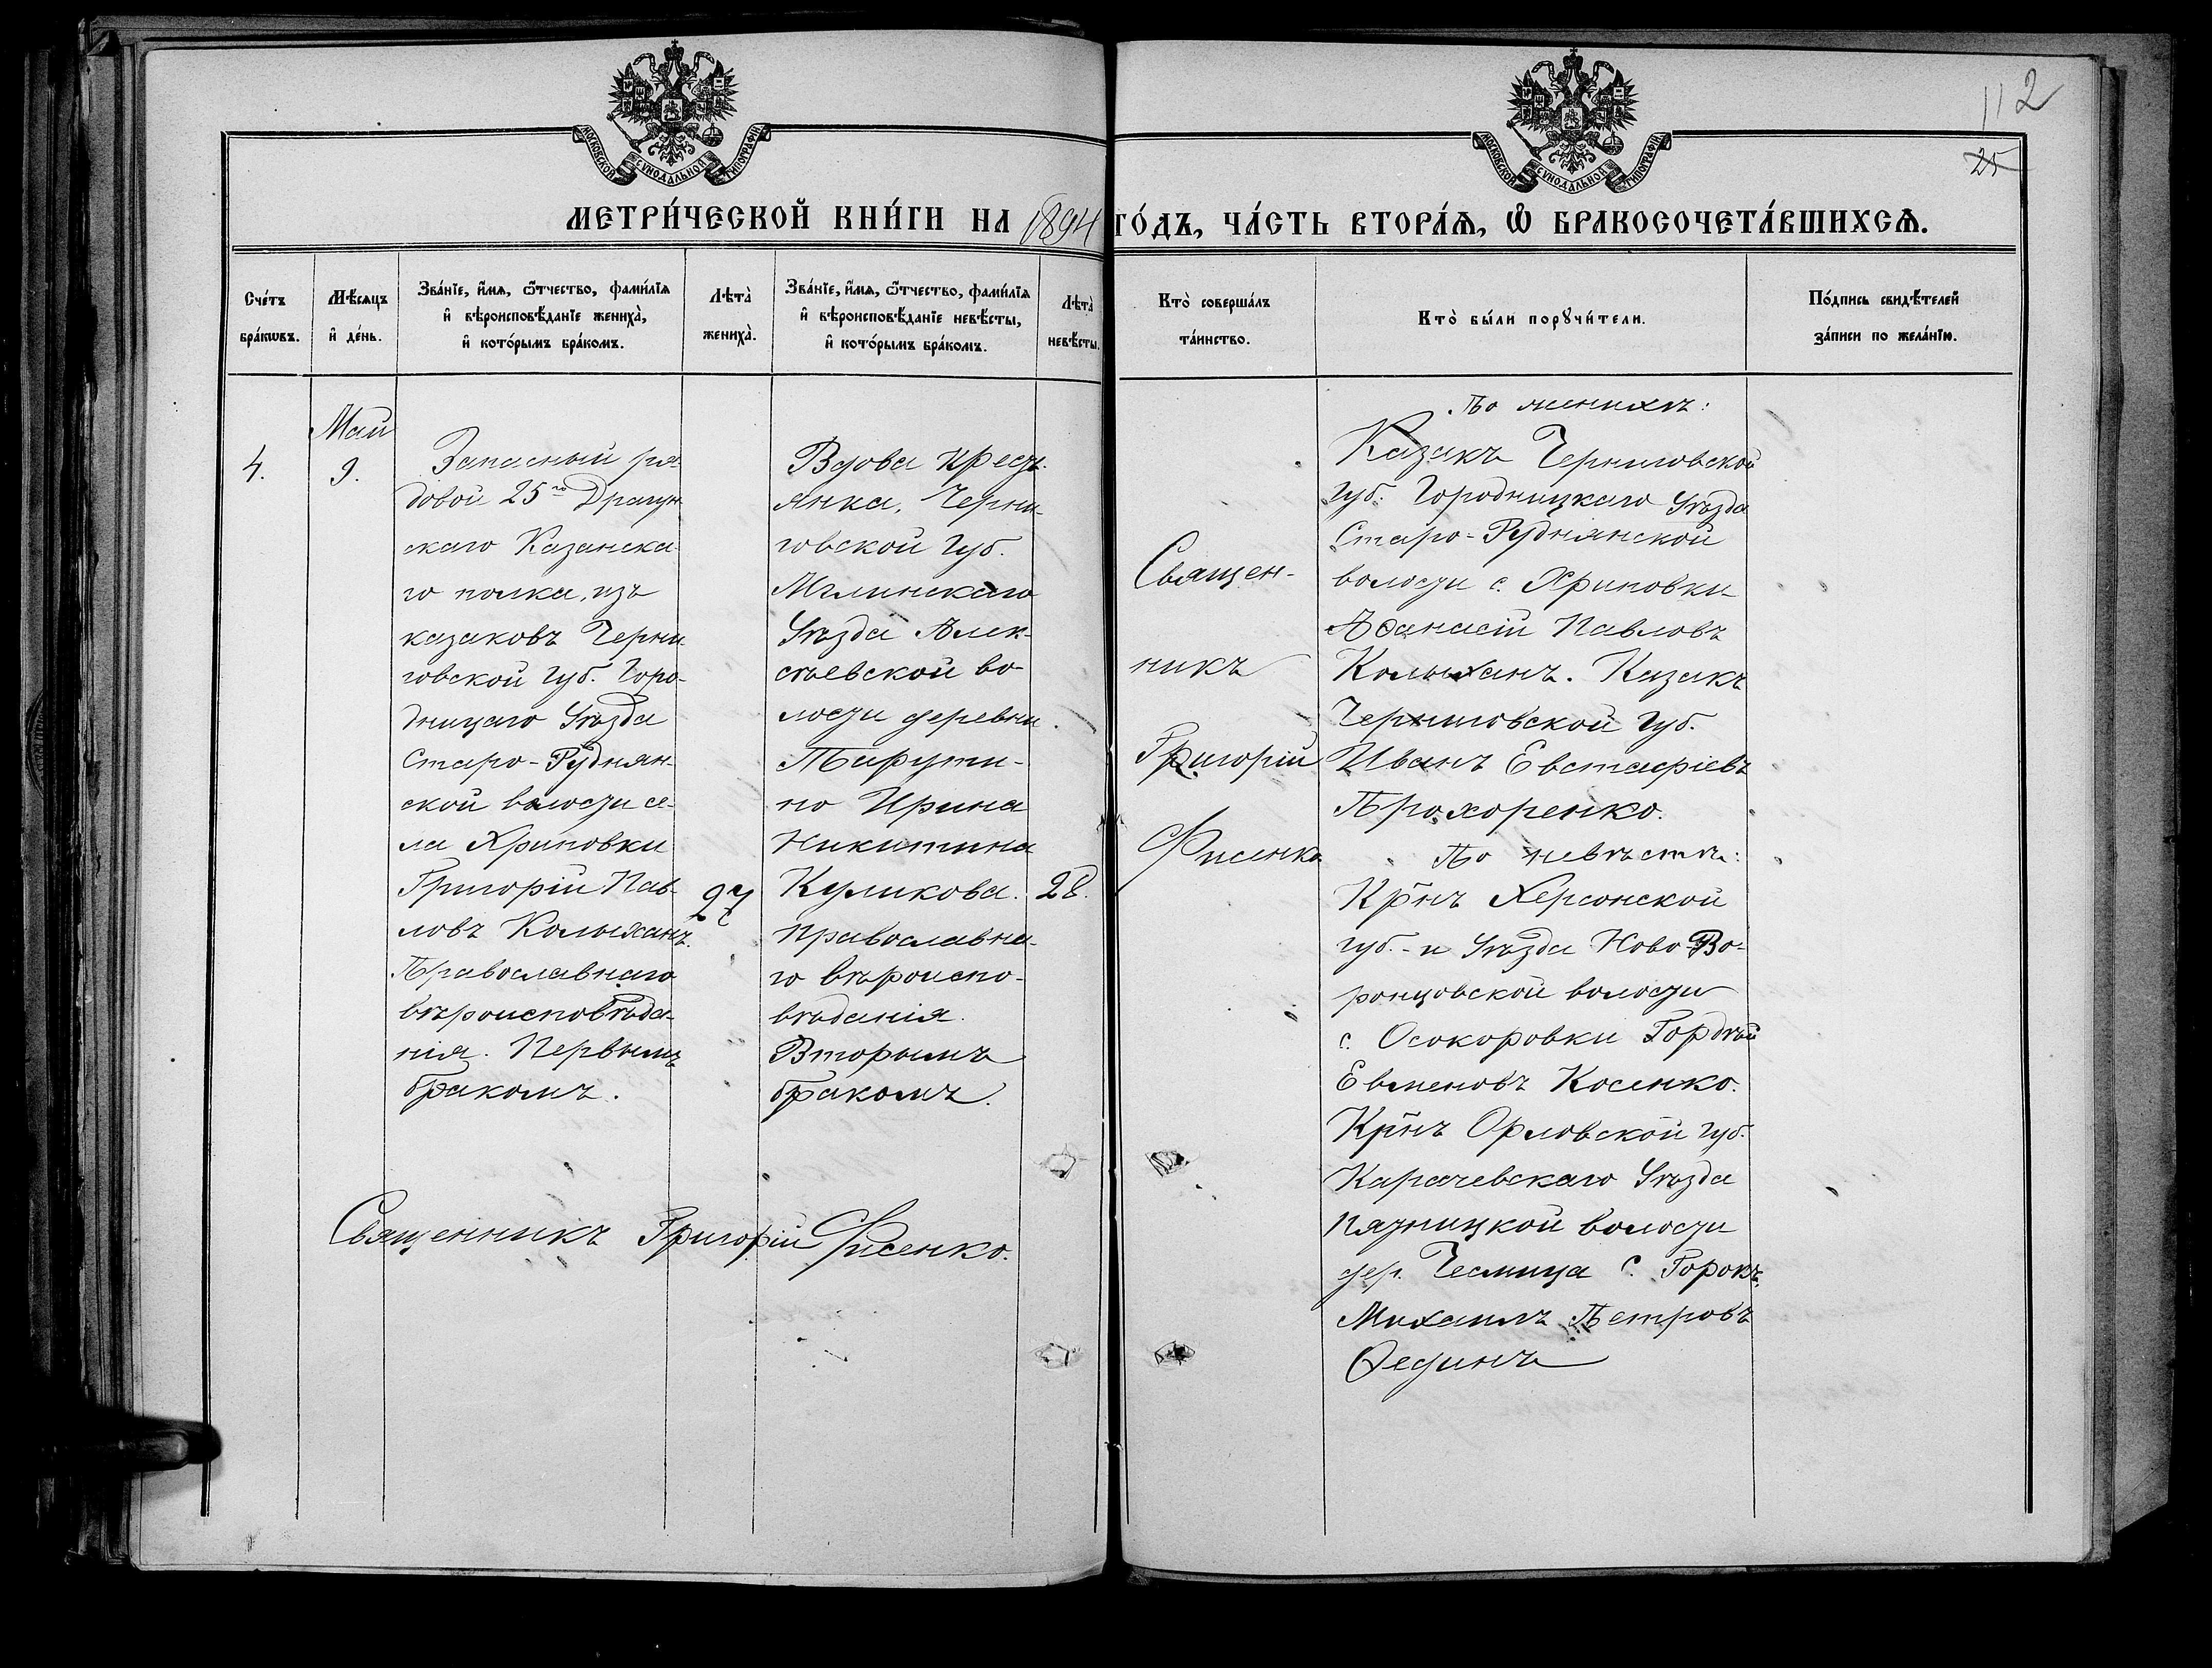 112
25
МОСКОВСКОЙ СѴНОДАЛЬНОЙ ТИПОГРАФІИ
МОСКОВСКОЙ СѴНОДАЛЬНОЙ ТИПОГРАФІИ
МЕТРИ́ЧЕСКОЙ КНИ́ГИ НА 1894 ГО́ДЪ, ЧА́СТЬ ВТОРА́Ѧ, Ѽ БРАКОСОЧЕТА́ВШИХСѦ.
Сче́тъ
бра́кѡвъ.
Мѣ́сѧцъ
и҆ де́нь.
Зва́нїе, и҆́мѧ, ѻ҆́тчество, фамі́лїѧ
и҆ вѣроисповѣ́данїе жениха̀,
и҆ кото́рымъ бра́комъ.
Лѣта̀
жениха̀.
Зва́нїе, и҆́мѧ, ѻ҆́тчество, фамі́лїѧ
и҆ вѣроисповѣ́данїе невѣ́сты,
и҆ кото́рымъ бра́комъ.
Лѣта̀
невѣ́сты.
Кто̀ соверша́лъ
та́инство.
Кто̀ бы́ли порꙋчи́тели.
По́дпись свидѣ́телей
за́писи по жела́нїю.
4.
Май
9.
Запасный ря-
довой 25го Драгун-
скаго Казанска-
го полка, изъ
казаковъ Черни-
говской губ. Горо-
дницаго Уѣзда
Старо-Руднян-
ской волости се-
ла Хриповки
Григорій Пав-
ловъ Колыханъ.
Православнаго
вѣроисповѣда-
нія. Первымъ
бракомъ.
27
Вдова крест-
янка, Черни-
говской губ.
Мглинскаго
Уѣзда Алек-
сѣевской во-
лости деревни
Тарути-
но Ирина
Никитина
Куликова.
Православна-
го вѣроиспо-
вѣданія.
Вторымъ
бракомъ.
28.
Священникъ Григорій Фисенко.
Священ-
никъ
Григорій
Фисенко
По женихѣ:
Казакъ Черниговской
губ. Городницкаго Уѣзда
Старо-Руднянской
волости с. Хриповки
Аѳанасій Павловъ
Колыханъ. Казакъ
Черниговской губ.
Иванъ Евстафіевъ
Прохоренко.
По невѣстѣ:
Крнъ Херсонской
губ. и Уѣзда Ново-Во-
ронцовской волости
с. Осокоровки Гордѣй
Евменовъ Косенко.
Крнъ Орловской губ.
Карачевскаго Уѣзда
Пятницкой волости
дер. Теслица С. Горокъ.
Михаилъ Петровъ
Ѳединъ